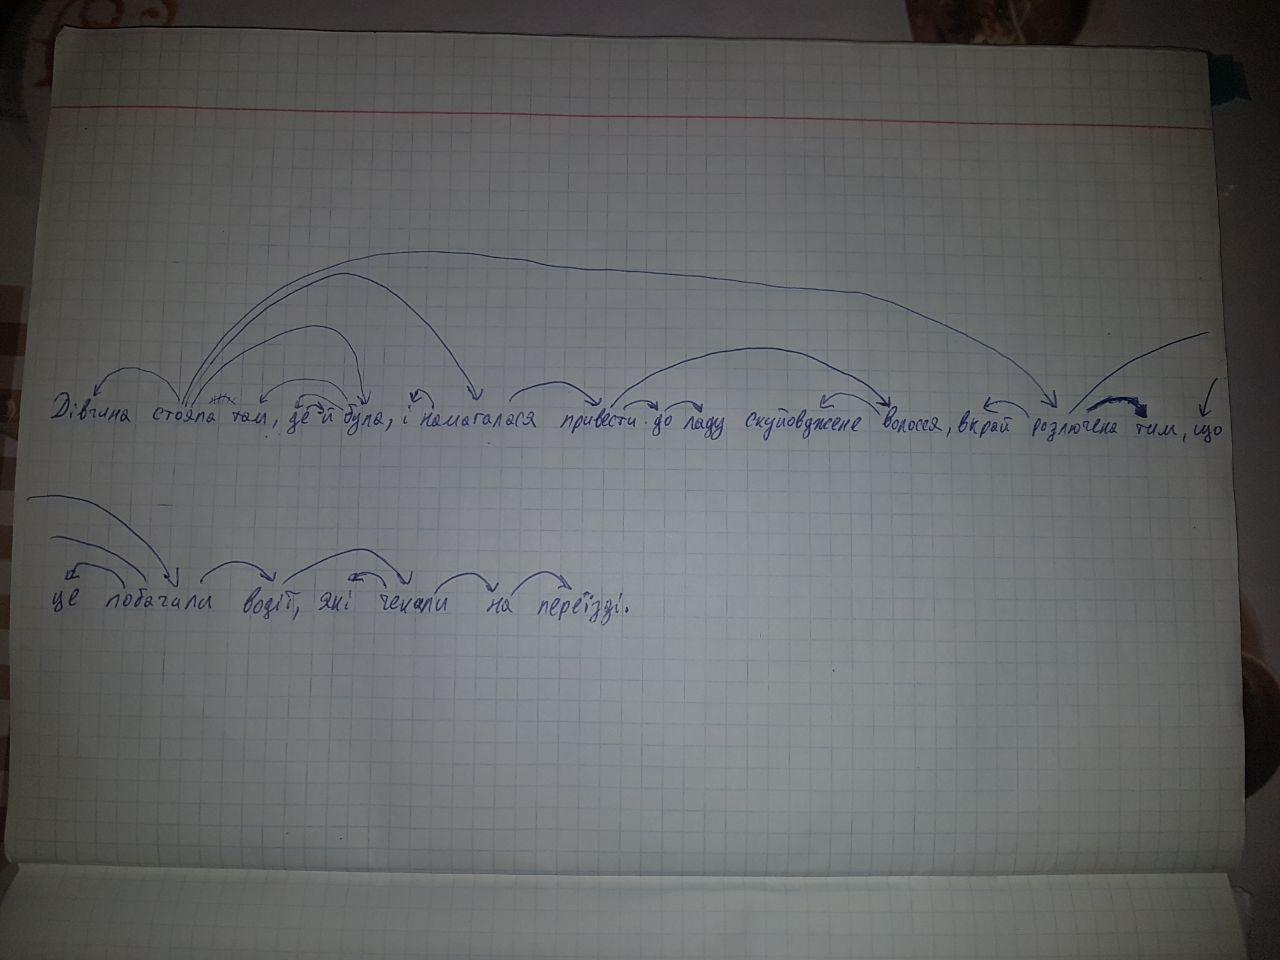 Дівчина стояла там, де й була, і намагалася привести до ладу скуйовджене волосся, вкрай розлючена тим, що
це побачили водії, які чекали на переїзді.